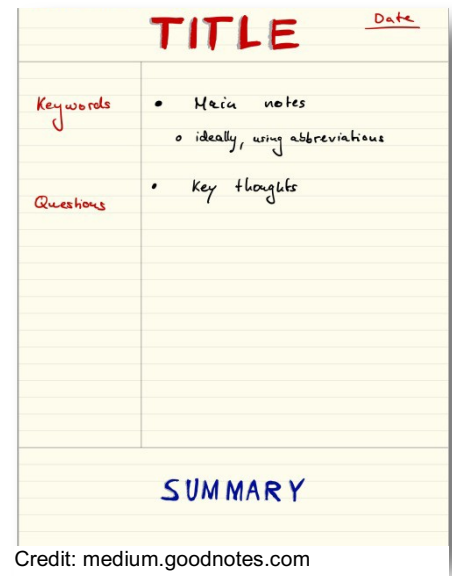 TITLE
Date
Keywords
• Main notes
o ideally, using abbreviations
• Key thoughts
Questions
SUMMARY
Credit: medium.goodnotes.com